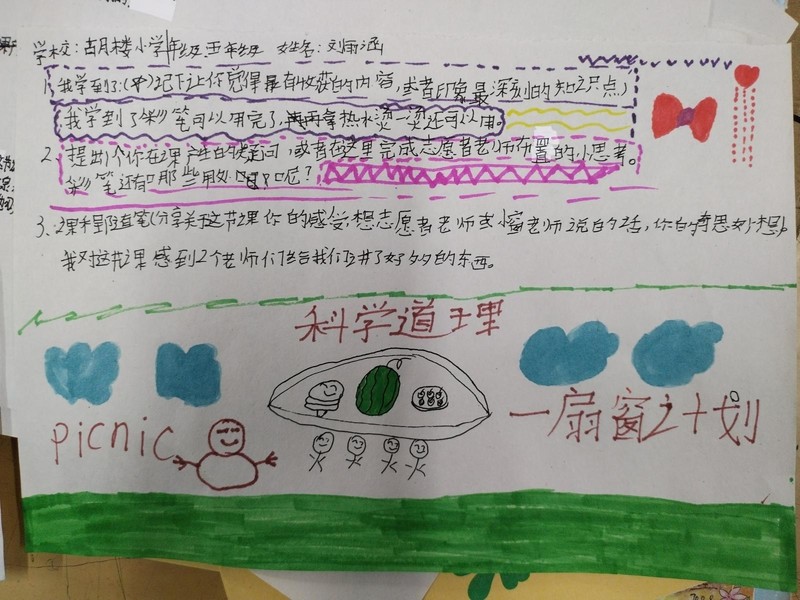 学校：古月楼小学 年级：五年级 姓名：刘雨涵
1.我学到了：(✓)记下让你觉得最有收获的内容，或者印象最深刻的知识点。)
我学到了彩笔可以用完了，再拿热水烫一烫还可以用。
2、提出1个你在课产生的疑问，或者在这里完成志愿者老师布置的小思考。
彩笔还有哪些用处呢？
3、课程随笔(分享关于这节课你的感受，想志愿者老师或小窗老师说的话，你的奇思妙想)。
我对这节课感到2个老师们给我们讲了好多的东西。
科学道理
picnic
一扇窗之计划